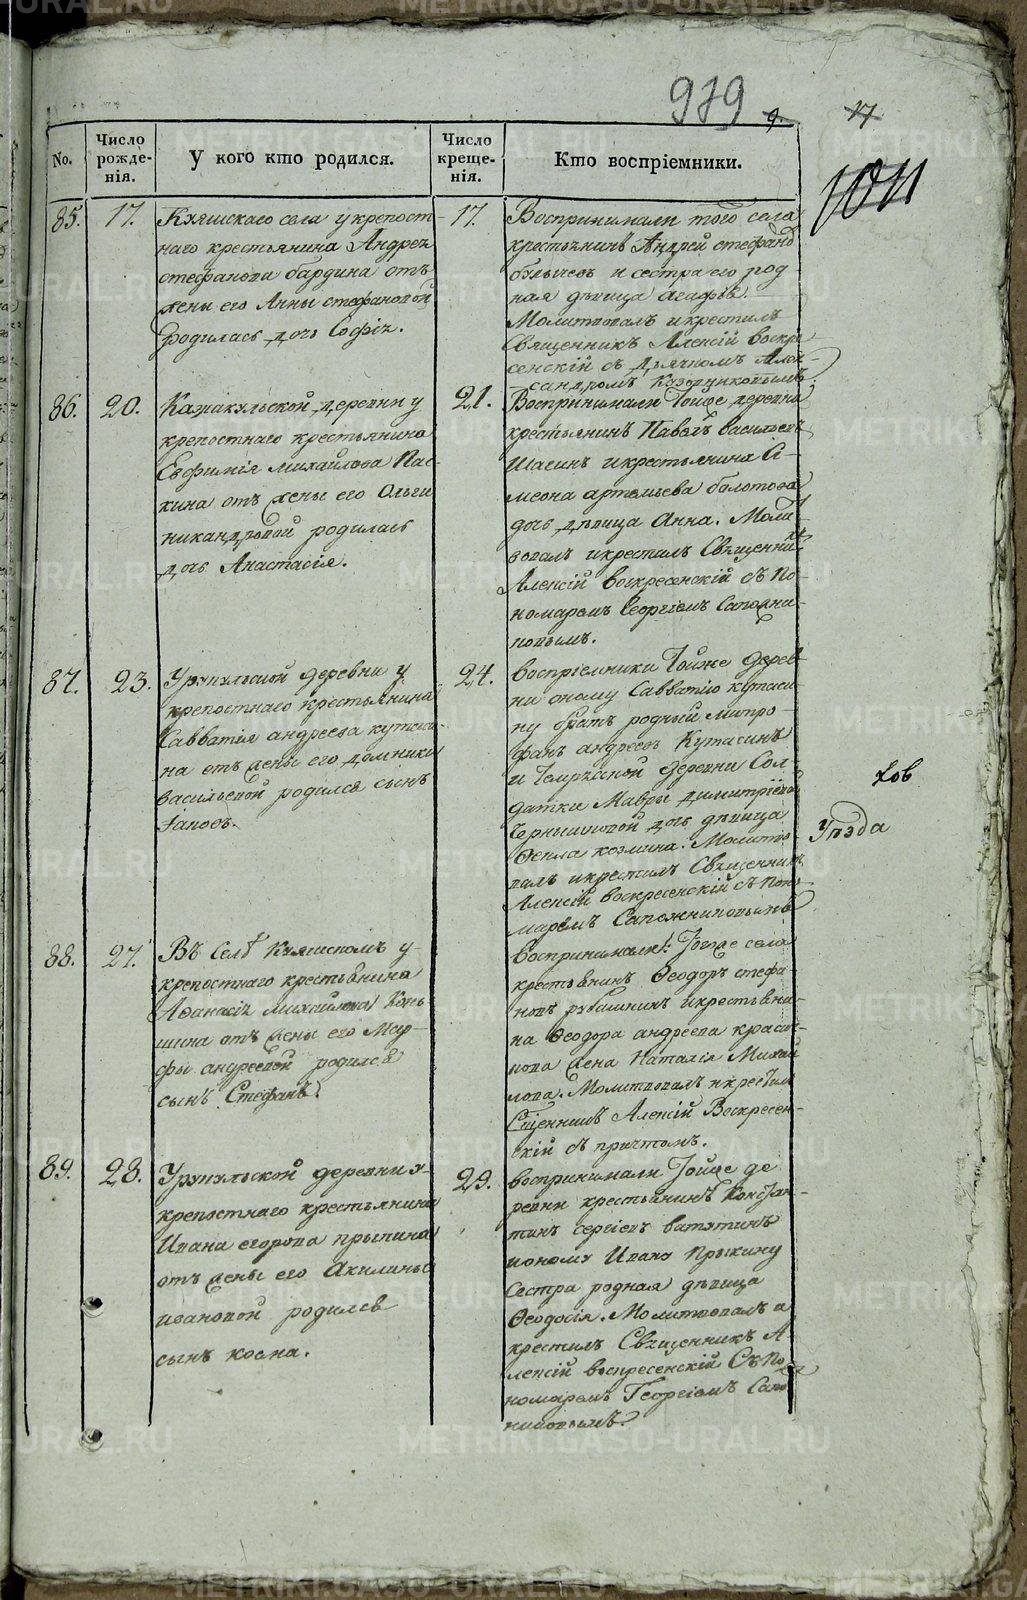 979
9.
17
1011
No.
Число рожде-нія.
У кого кто родился.
Число креще-нія.
Кто воспріемники.
85. 17.
Кіяшскаго села у крепост-
наго крестьянина Андрея
стефанова бардина отъ
жены его Анны стефановой
родилась дочь Софія.
17.
Воспринимали того села
крестьянинъ Андрей стефановъ
и сестра его род-
ная дѣвица Агафья.
Молитвовалъ и крестилъ
Священникъ Алексій воскре
сенскій съ дьячкомъ Алек-
сандромъ
86. 20.
деревни у
крепостнаго крестьянина
Евфимія михайлова Пас-
кина отъ жены его Ольги
никандровой родилась
дочь Анастасія.
21.
Воспринимали Тойже деревни
крестьянинъ Павелъ васильевъ
Шасинъ и крестьянина Си-
меона артемьева болотова
дочь дѣвица Анна. Молит-
вовалъ и крестилъ Священникъ
Алексій воскресенскій съ По-
номаремъ Георгіемъ Сапожни-
ковымъ.
87. 23.
деревни у
крепостнаго крестьянина
Савватія андреева кутаси-
на отъ жены его домники
васильевой родился сынъ
Іаковъ.
24.
воспріемники Тойже дерев-
ни оному Савватію кутаси-
ну братъ родный митро-
фанъ андреевъ Кутасинъ
и деревни Сол-
датки Мавры димитріевой
дочь дѣвица
Фекла козмина. Молитво-
валъ и крестилъ Священникъ
Алексій воскресенскій съ поно-
маремъ Сапожниковымъ
ковъ
Уѣзда
88. 27.
Въ Селѣ Кіяшскомъ у
крепостнаго крестьянина
Афанасія михайлова Конь
шина отъ жены его Мар-
фы андреевой родился
сынъ Стефанъ.
воспринимали: Тогоже села
крестьянинъ Феодоръ стефа
новъ и крестьяни-
на Феодора андреева красно-
жена Наталія Михай
лова. Молитвовалъ и крестилъ
Сщенникъ Алексій Воскресен-
скій съ причтомъ.
89. 28.
деревни у
крепостнаго крестьянина
Ивана егорова прыкина
отъ жены его Акилины
ивановой родился
сынъ косма.
29.
воспринимали Тойже де
ревни крестьянинъ Констан-
тинъ сергіевъ ватутинъ
и оному Ивану прыкину
Сестра родная дѣвица
Феодосія. Молитвовалъ и
крестилъ Священникъ А-
лексій воскресенскій Съ По-
номаремъ Георгіемъ Сапож
никовымъ.
METRIKI.GASO-URAL.RU